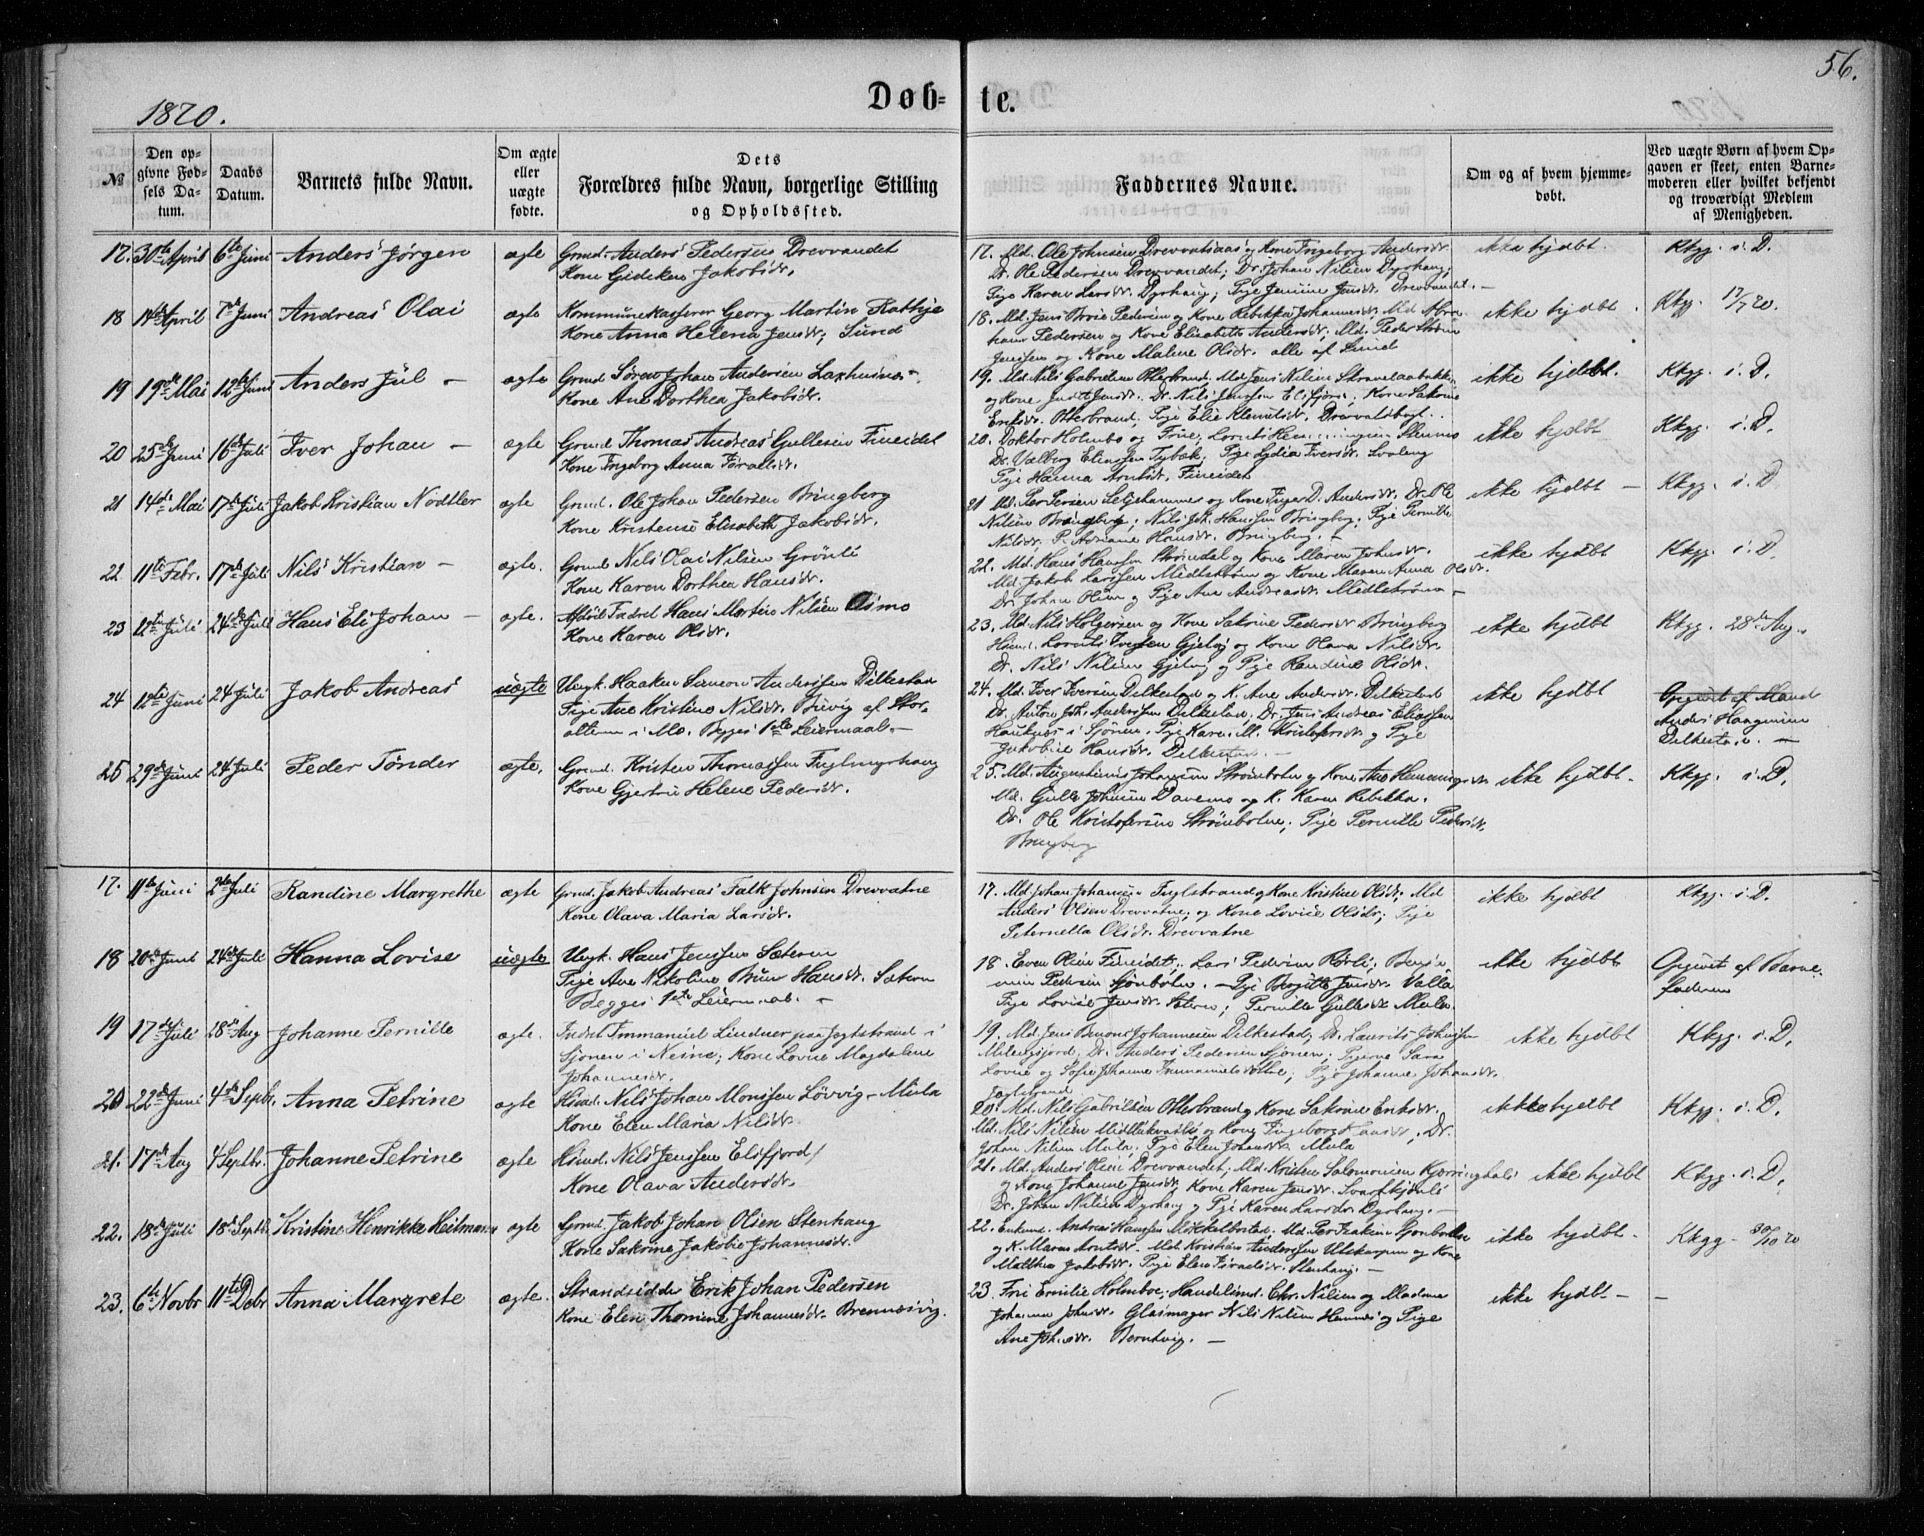 56.
1870.
Døb-
te.
№
Den op-
givne Fød-
sels Da-
tum.
Daabs
Datum.
Barnets fulde Navn.
Om ægte
eller
uægte
fødte.
Dets
Forældres fulde Navn, borgerlige Stilling
og Opholdssted.
Faddernes Navne.
Om og af hvem hjemme-
døbt.
Ved uægte Børn af hvem Op-
gaven er skeet, enten Barne-
moderen eller hvilket bekjendt
og troværdigt Medlem
af Menigheden.
17. 30te April 6te Juni Anders Jørgen ægte Grmd. Anders Pedersen Drevvandet
Kone Gidsken Jakobsdr.
17. Md. Ole Johnsen Drevvatsaas og Kone Ingeborg Andersdr.
Dr. Ole Pedersen Drevvandet; Dr. Johan Nilsen Dyrhaug;
Pige Karen Larsdr. Dyrhaug; Pige Jensine Jensdr. Drevvandet. —
ikke hjdbt. Kkgg. i. D.
18 14de April 7de Juni Andreas Olai ægte Kommunekasserer Georg Martin Rathje
Kone Anna Helena Jensdr; Sund
18. Md. Jens Broe Pedersen og Kone Rebekka Johannesdr, Md Abra
ham Pedersen og Kone Elisabeth Andersdr; Md. Peder Strøm
Jenssen og Kone Malene Olsdr. alle af Sund
ikke hjdbt. Kkg. 17/7 70.
19 19de Mai 12te Juni Anders Jul — ægte Grmd. Søren Johan Andersen Laxhusnes.
Kone Ane Dorthea Jakobsdr.
19. Md. Nils Gabrielsen Otterbrand. Md. Jens Nilsen
og Kone Judit Jensdr. Dr. Nils Jenssen Elsfjord, Kone Sakrine
Eriksdr. Otterbrand; Pige Elie Klemetsdr.
ikke hjdbt. Kkgg. i. D.
20 25de Juni 16de Juli Iver Johan — ægte Grmd Thomas Andreas Gullesen Fineidet
Kone Ingeborg Anna
20. Doktor Holmbo og Frue, Lorents
Dr. Valberg Eliassen Tybæk; Pige Lydia Iversdr.
Pige Hanna Arntsdr. Fineidet
ikke hjdbt Kkgg. i. D
21 14de Mai 17de Juli Jakob Kristian Nødtler ægte Grmd. Ole Johan Pedersen Bringberg
Kone Kristense Elisabeth Jakobsdr.
21 Md. Per Persen og Kone Inger D. Andersdr. Dr. Ole
Nilsen Bringberg; Nils Joh. Hanssen Bringberg; Pige Pernille
Nilsdr. P. Adriane Hansdr. Bringberg. —
ikke hjdbt — Kkgg. i. D
22 11te Febr. 17de Juli Nils Kristian — ægte. Grmd Nils Olai Nilsen Grønli
Kone Karen Dorthea Hansdr.
22. Md. Hans Hansen Strømdal og Kone Maren Johnsdr.
Md. Jakob Larssen Midtstrøm og Kone Maren Anna Olsdr.
Dr. Johan Olsen og Pige Ane Andreasdr. Midtstrøm —
ikke hjdbt Kkgg. i. D
23 12te Juli 24de Juli Hans Eli Johan — ægte. Hans Martin Nilsen Olsmo
Kone Karen Olsdr.
23. Md Nils Holgersen og Kone Sakrine Pedersdr Bringberg
Lornts Iversen Gjelvig og Kone Olava Nilsdr.
Dr. Nils Nilsen Gjelvig og Pige Randine Olsdr.
ikke hjdbt Kkgg. 28de Aug.
24 12te Juni 24 Juli Jakob Andreas uægte Ungk. Haaken Simon Anderssen Dilkestad
Pige Ane Kristine Nilsdr. af Stor-
alteren i Mo. Begges 1ste Leiermaal —
24. Md. Iver Iversen Dilkestad og K. Ane Andersdr. Dilkestad
Dr. Anton Joh. Anderssen Dilkestad. Dr. Jens Andreas Eliassen
Hauknes i Sjonen, Pige Karen M. Kristofersdr og Pige
Jakobine Hansdr. Dilkestad. —
ikke hjdbt
Opgivet af Mand
Anders Haagensen
Dilkestad. —
25 29de Juni 24 Juli Peder Tønder ægte. Grmd. Kristen Thomassen Fuglmyrhaug
Kone Gjertru Helene Pedersdr.
25. Md. Augustinus Johansen Strømbotn og Kone Ane Henningsdr
Md. Gulle Johnsen Davemo og K. Karen Rebekka.
Dr. Ole Kristofersen Strømbotne; Pige Pernille Pedersdr.
Bringberg
ikke hjdbt. Kkgg. i. D.
17. 11te Juni 2den Juli Randine Margrethe ægte Grmd. Jakob Andreas Falk Johnsen Drevvatne
Kone Olava Maria Larsdr.
17. Md Johan Johansen Fuglstrand og Kone Kristine Olsdr, Md
Anders Olsen Drevvatne; og Kone Lovise Olsdr; Pige
Peternella Olsdr. Drevvatne
ikke hjdbt Kkgg. i. D.
18 20de Juni 24de Juli Hanna Lovise uægte Ungk. Hans Jenssen Sæteren
Pige Ane Nikoline Brun Hansdr. Sæteren
Begges 1ste Leiermaal. —
18. Even Olsen Fineidet; Lars Pedersen Rørli;
Pedersen Sjonbotn. — Pige Birgitte Jensdr. Valla
Pige Lovise Jensdr. Sæteren; Pernille Gullesdr Mula.
ikke hjdbt
Opgivet af Barne-
faderen
19 17de Juli 28de Aug Johanne Pernille ægte. Inderst Immanuel Lindner paa Joglstrand i
Sjonen i Nesne; Kone Lovise Magdalene
Johannesdr.
19. Md. Jens Benoni Johannesen Dilkestad; Dr. Laurits Johnsen
Dr. Anders Pedersen Sjonen; Pigerne Sara
Lovise og Sofie Johanne Immanuelsdøttre; Pige Johanne Johansdr.
Joglstrand
ikke hjdbt Kkgg. i. D.
20 22de Juni 4de Septbr. Anna Petrine ægte Hsmd. Nils Johan Monssen Løvvig — Mula
Kone Elen Maria Nilsdr.
20. Md. Nils Gabrielsen Otterbrand og Kone Sakrine Eriksdr.
Md. Nils Nilsen og Kone Ingeborg; Dr.
Johan Nilsen Mula; Pige Elen Johansdr. Mula
ikke hjdbt Kkgg. i. D.
21. 17de Aug 4 Septbr. Johanne Petrine ægte Hsmd. Nils Jenssen Elsfjord
Kone Olava Andersdr.
21. Md. Anders Olsen Drevvandet; Md. Kristen Salomonsen Kjerringhals
og Kone Johanne Jensdr. Kone Karen Jensdr.
Dr. Johan Nilsen Dyrhaug og Pige Karen Larsdr. Dyrhaug. —
ikke hjdbt Kkgg. i. D.
22. 18de Juli 18de Septbr Kristine Henrikke Heitmann ægte Grmd. Jakob Johan Olsen Stenhaug
Kone Sakrine Jakobie Johannesdr.
22. Enkemd. Andreas Hanssen Mikkelbostad. Md. Per Isaksen Sjonbotn
og K. Maren Arntsdr. Md. Kristian Anderssen Utskarpen og Kone
Matthea Jakobsdr. Pige Elen Stenhaug. —
ikke hjdbt. Kkgg — 30/10 70
23. 6te Novbr 11te Debr Anna Margrete ægte. Strandsidder Erik Johan Pedersen
Kone Elen Thomine Johannesdr. Brennesvig.
23. Fru Emilie Holmboe; Handelsmd. Chr. Nilsen og Madame
Johanna Johnsdr. Glasmager Nils Nilsen Hemnes og Pige
Ane Johnsdr. Berntvig. —
ikke hjdbt — —